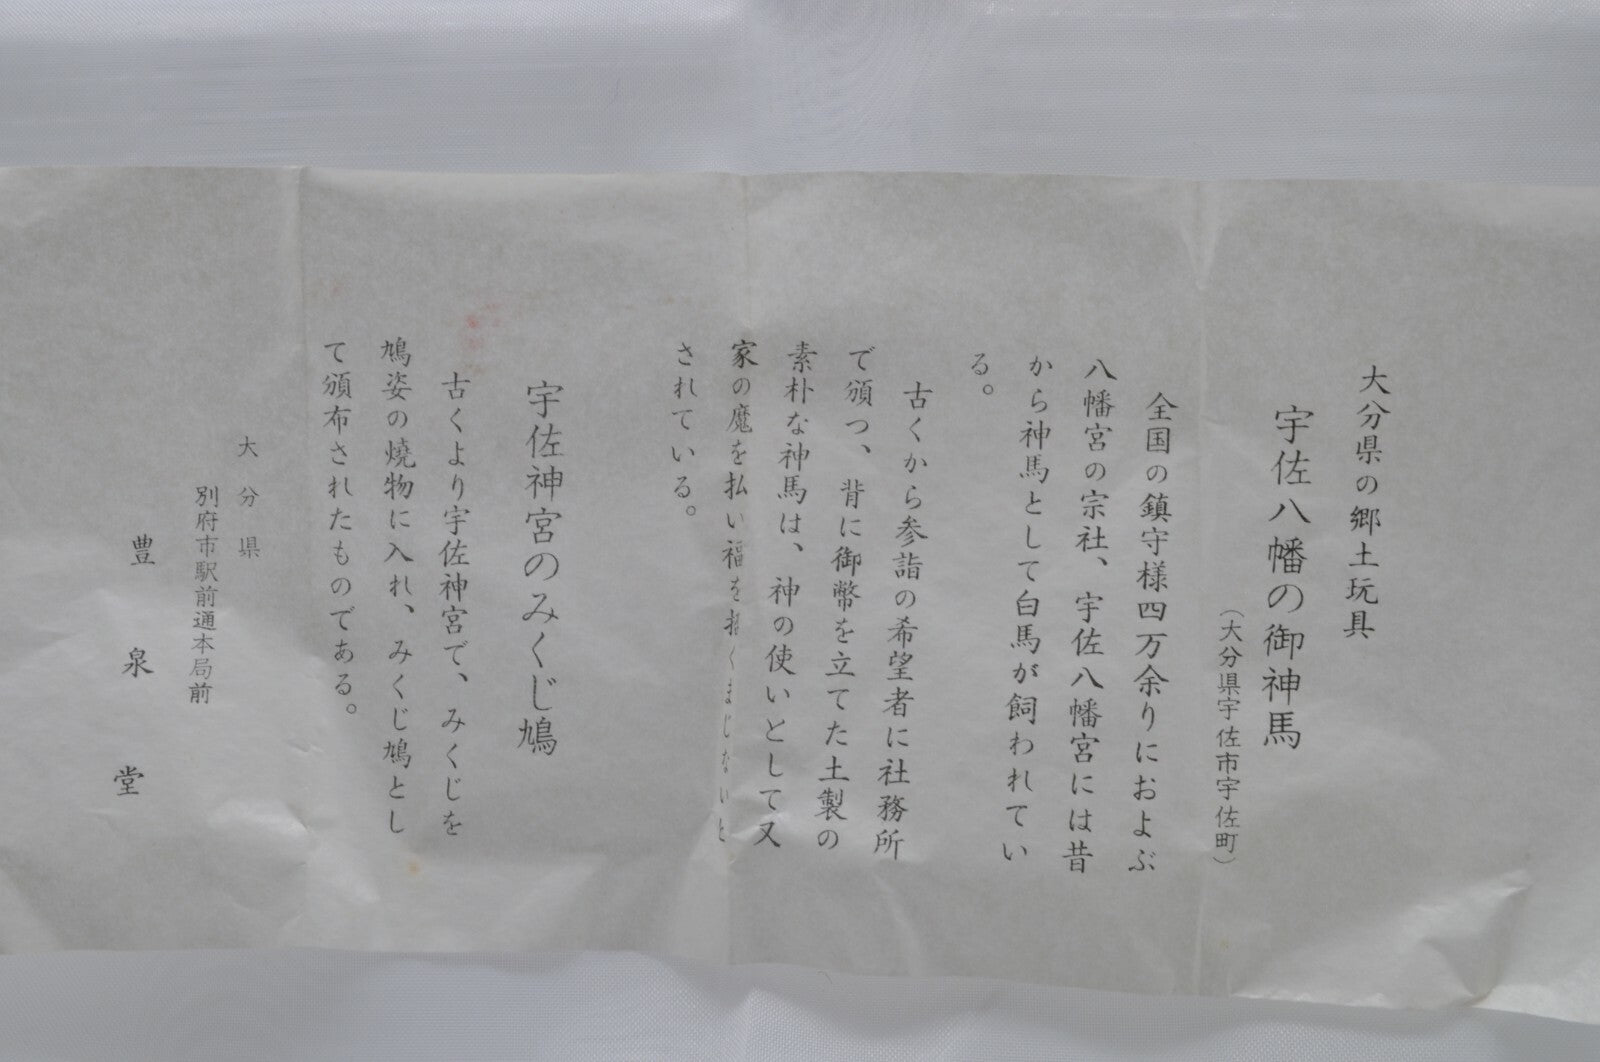 大分県の郷土玩具
宇佐八幡の御神馬
（大分県宇佐市宇佐町）
全国の鎮守様四万余りにおよぶ
八幡宮の宗社、宇佐八幡宮には昔
から神馬として白馬が飼われてい
る。
古くから参詣の希望者に社務所
で頒つ、背に御幣を立てた土製の
素朴な神馬は、神の使いとして又
家の魔を払い福を招くまじないと
されている。
宇佐神宮のみくじ鳩
古くより宇佐神宮で、みくじを
鳩姿の焼物に入れ、みくじ鳩とし
て頒布されたものである。
大分県
別府市駅前通本局前
豊泉堂